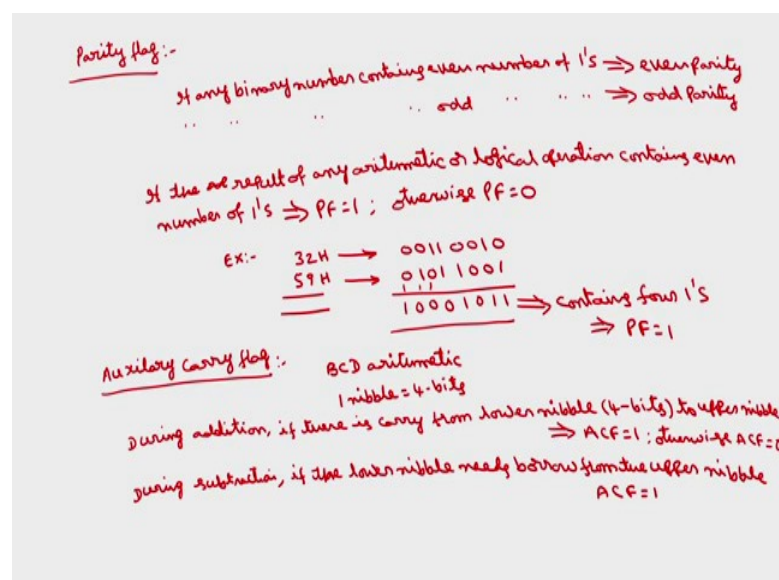 Parity flag:-
If any binary number contains even number of 1's ⇒ even parity
" " " " odd " " " ⇒ odd Parity
If the result of any aritmetic or logical operation contains even
number of 1's ⇒ PF=1 ; otherwise PF=0
EX:- 32H → 0011 0010
59H → 0101 1001
10001011 ⇒ contains four 1's
⇒ PF=1
Auxilary carry flag:- BCD aritmetic
1 nibble = 4-bits
During addition, if there is carry from lower nibble (4-bits) to upper nibble
⇒ ACF=1 ; otherwise ACF=0
During subtraction, if the lower nibble needs borrow from the upper nibble
ACF=1